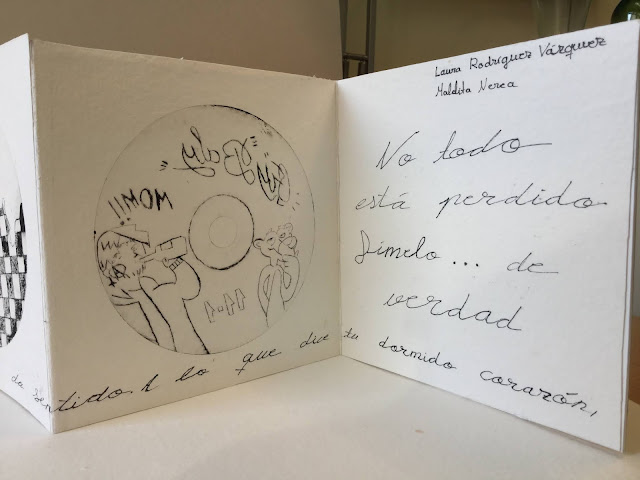 Laura Rodríguez Vázquez
Maldita Nerea
No todo
está perdido
Dímelo... de
verdad
Baby
WOW!!
da sentido. A lo que dice tu dormido corazón,